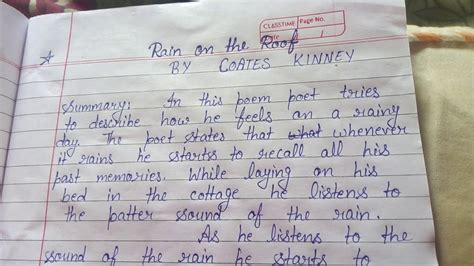 CLASSTIME Page No. 1
Date
Rain on the Roof
BY COATES KINNEY
Summary: In this poem poet tries
to describe how he feels on a rainy
day. The poet states that what whenever
it rains he starts to recall all his
past memories. While laying on his
bed in the cottage he listens to
the patter sound of the rain.
As he listens to the
sound of the rain he starts to